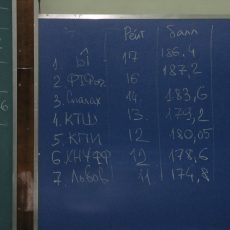 Рейт балл
1. 17 186,4
2. 16 187,2
3. 14. 183,6
4. КПШ 13. 179,2
5. КПИ 12 180,05
6 12 178,6
7 Львов 11. 174,8
6